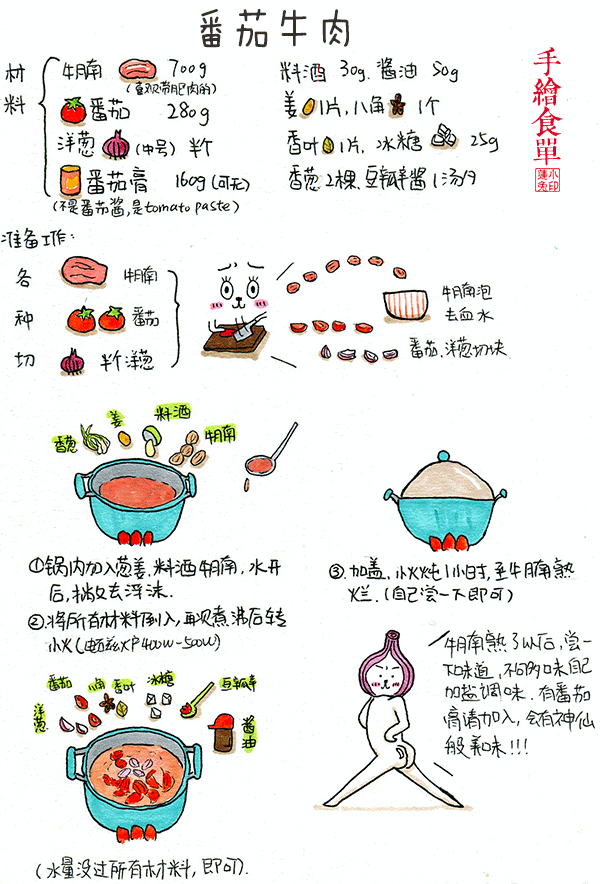 番茄牛肉
手繪食單
小印
蓮兔
材料
牛腩 700g
(喜欢带肥肉的)
番茄 280g
洋葱 (中号) 半个
番茄膏 160g (可无)
(不是番茄酱,是tomato paste)
料酒 30g、酱油 50g
姜 1片,八角 1个
香叶 1片,冰糖 25g
香葱2棵、豆瓣酱1汤勺
准备工作:
各种切
牛腩
番茄
半个洋葱
牛腩泡
去血水
番茄、洋葱切块
香葱
姜
料酒
牛腩
①锅内加入葱姜、料酒牛腩,水开
后,撇去浮沫.
②.将所有材料倒入,再次煮沸后转
小火(电磁炉400W-500W)
③.加盖,小火炖1小时,至牛腩熟
烂.(自己尝一下即可)
洋葱
番茄
八角
香叶
冰糖
豆瓣酱
酱油
(水量没过所有材料,即可).
牛腩熟了以后,尝一
下味道,不够味自己
加盐调味.有番茄
膏请加入,会有神仙
般美味!!!